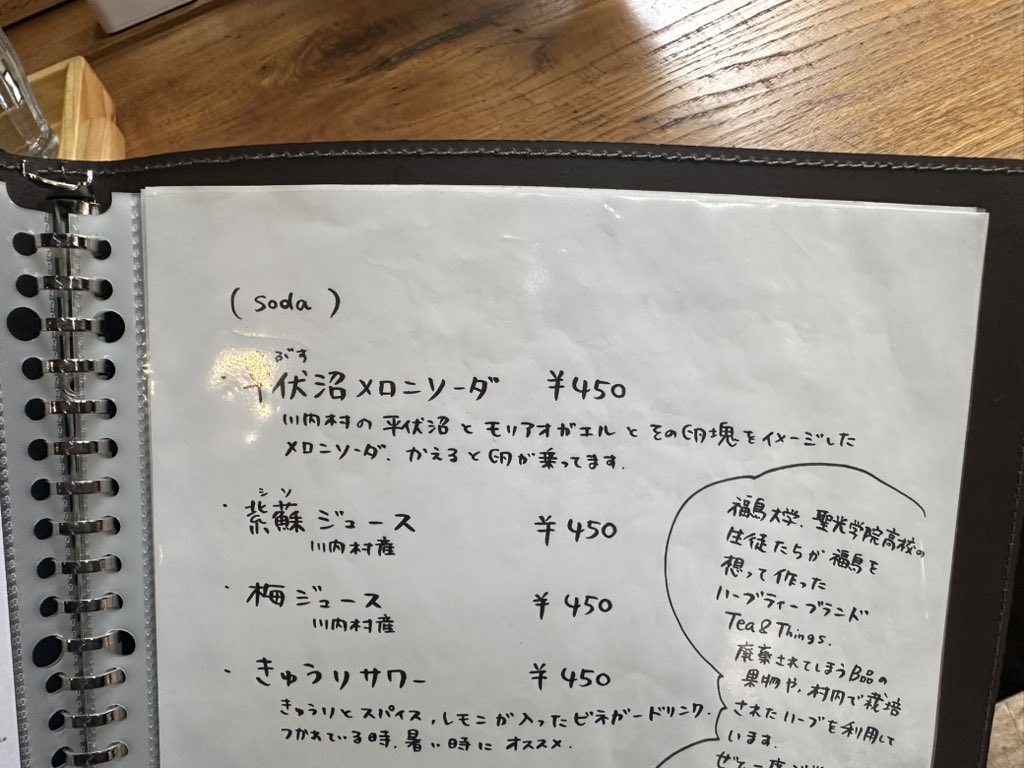 (soda)
ぶす
伏沼メロンソーダ ¥450
川内村の平伏沼とモリアオガエルとその卵塊をイメージした
メロンソーダ、かえると卵が乗ってます.
シソ
・紫蘇ジュース ¥450
川内村産
・梅ジュース ¥450
川内村産
・きゅうりサワー ¥450
きゅうりとスパイス、レモンが入ったビネガードリンク.
つかれている時、暑い時にオススメ.
福島大学、聖光学院高校の
生徒たちが福島を
想って作った
ハーブティーブランド
Tea&Things.
廃棄されてしまうB品の
果物や、村内で栽培
されたハーブを利用して
います.
ぜひ一度